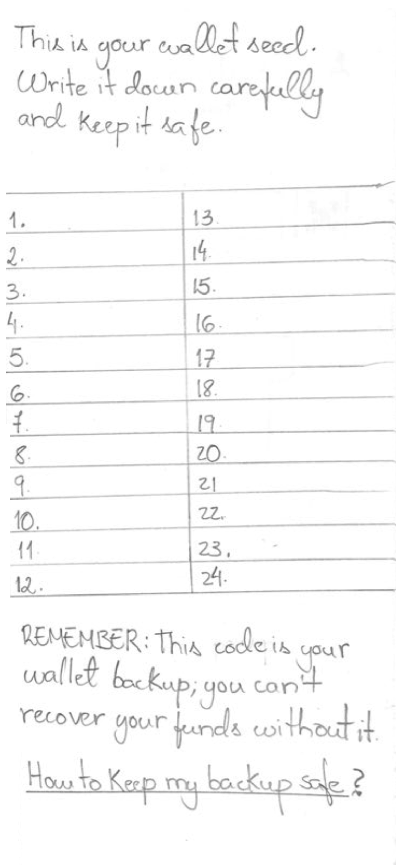 This is your wallet seed.
Write it down carefully
and keep it safe.
1. 13.
2. 14.
3. 15.
4. 16.
5. 17
6. 18.
7. 19
8. 20.
9. 21
10. 22.
11. 23.
12. 24.
REMEMBER: This code is your
wallet backup; you can't
recover your funds without it.
How to Keep my backup safe?